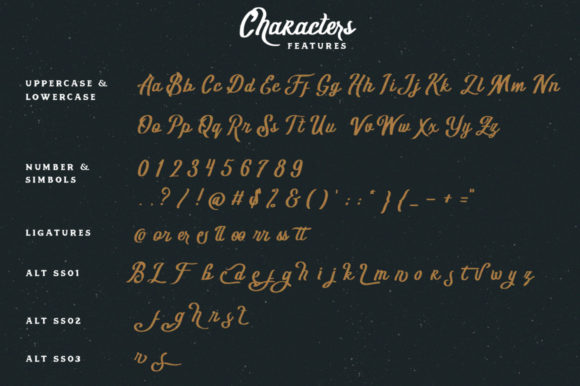 Characters
FEATURES
UPPERCASE &
LOWERCASE
Aa Bb Cc Dd Ee Ff Gg Hh Ii Jj Kk Ll Mm Nn
Oo Pp Qq Rr Ss Tt Uu Vv Ww Xx Yy Zz
NUMBER &
SIMBOLS
0 1 2 3 4 5 6 7 8 9
. , ? / ! @ # $ % & ( ) ' : ; * } { _ - + = "
LIGATURES
@ or er es ll oo rr ss tt
ALT SS01
B L F b c d e f g h i j k l m n v o r s t v w y z
ALT SS02
f g h r s l
ALT SS03
r s